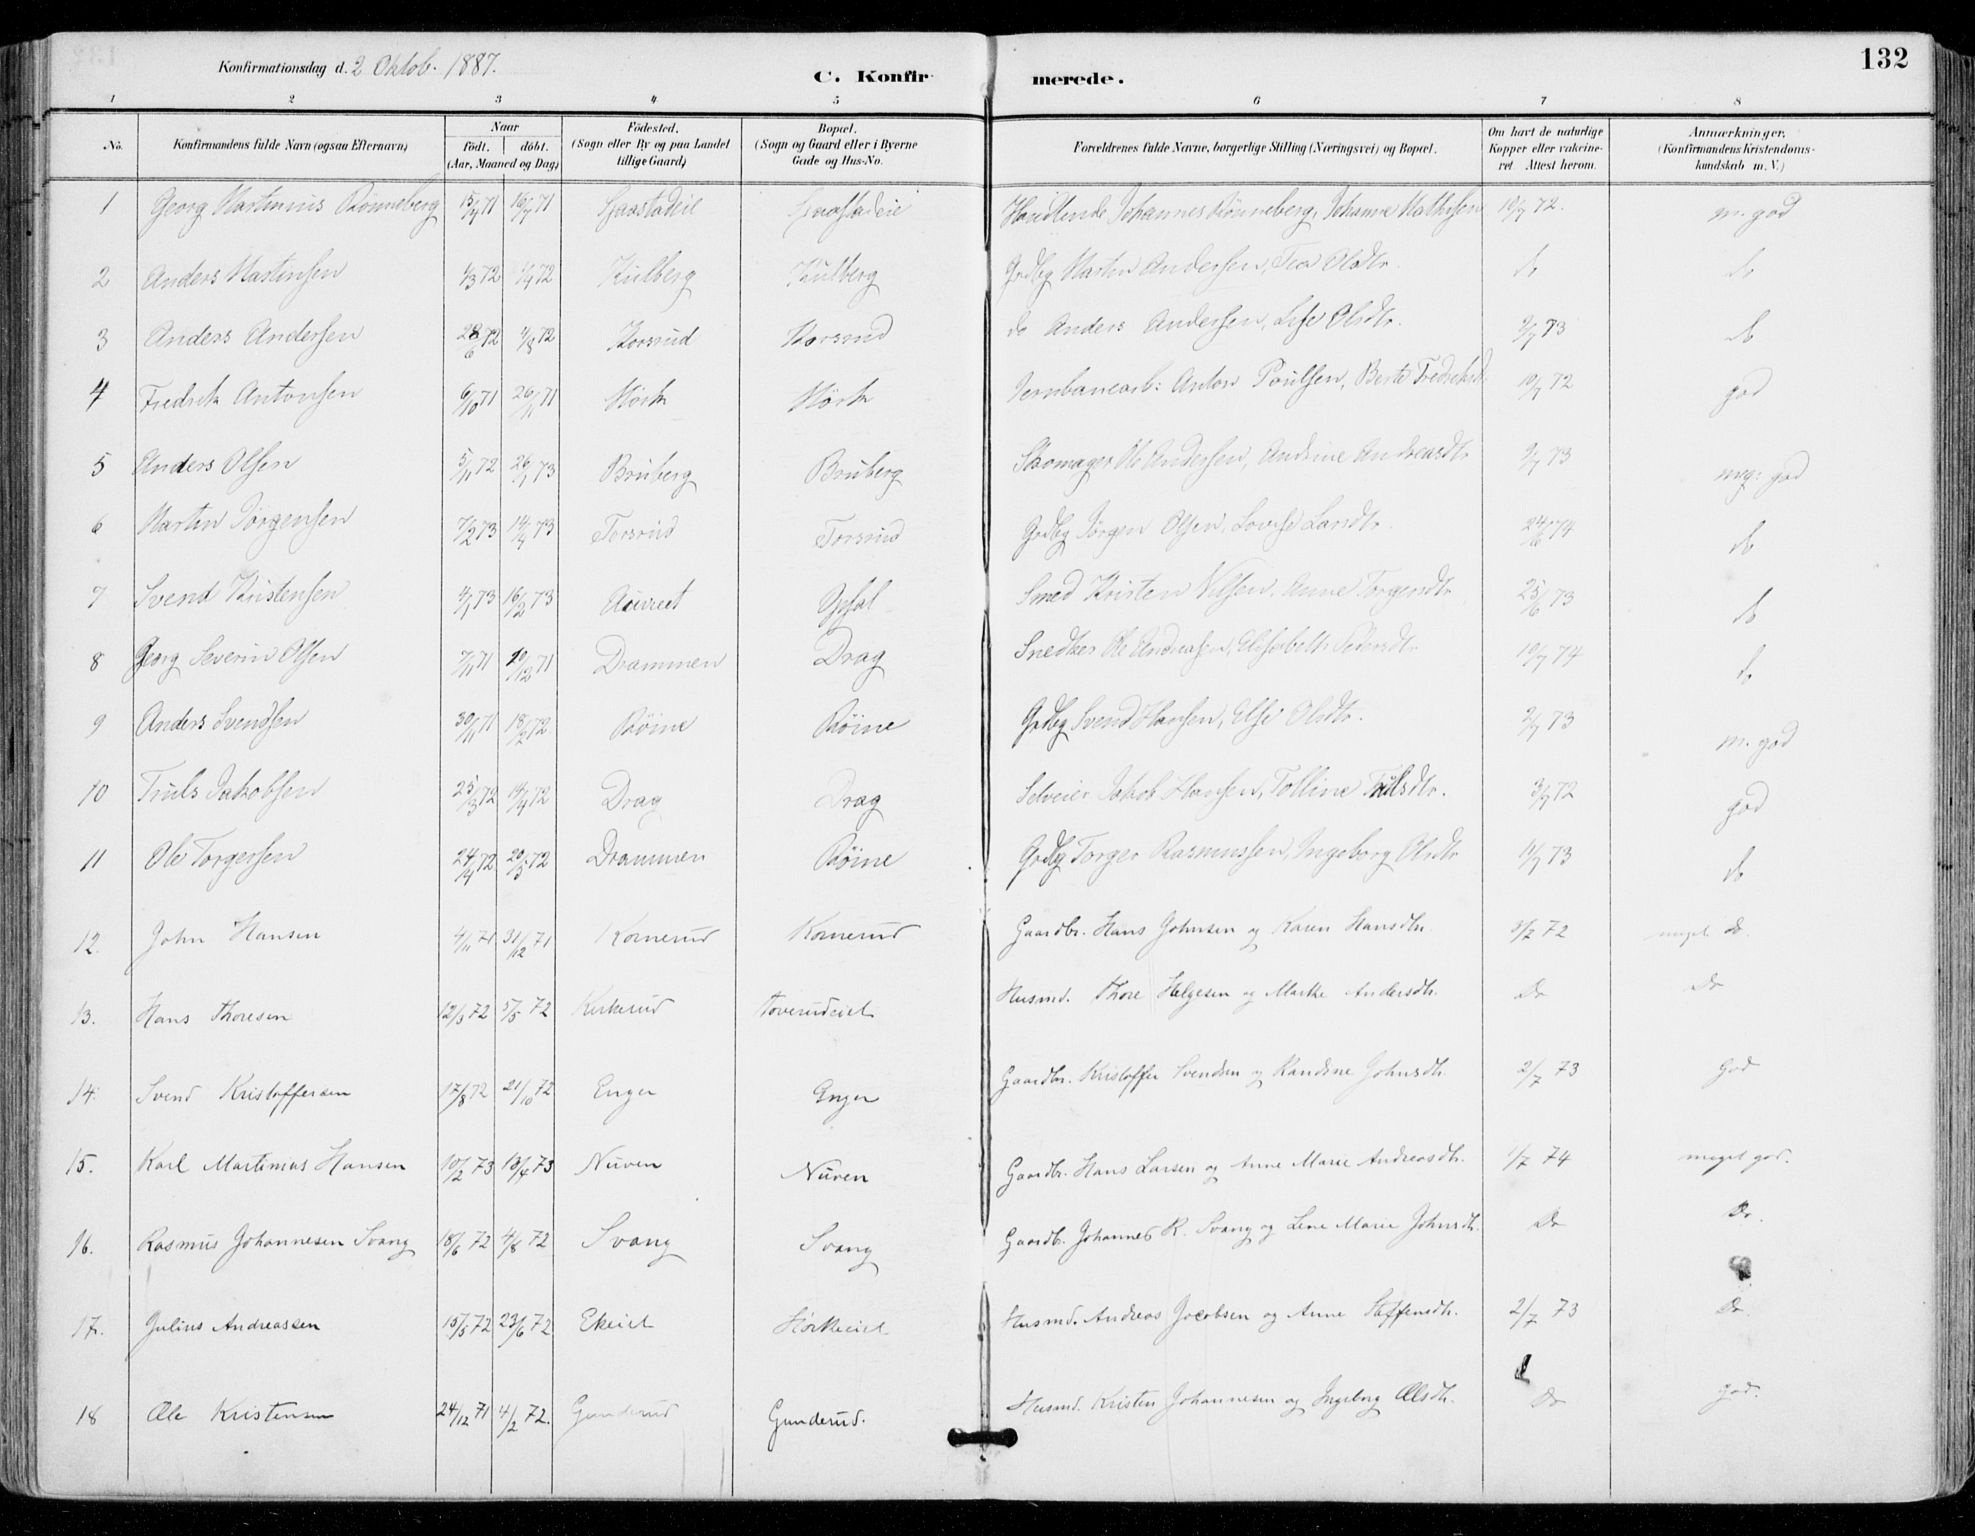 132
Konfirmationsdag d. 2 Oktob. 1887.
C. Konfirmerede.
1 2 3 4 5 6 7 8
No. Konfirmandens fulde Navn (ogsaa Efternavn) Naar födt. döbt. (Aar, Maaned og Dag) Födested. (Sogn eller By og paa Landet tillige Gaard) Bopæl. (Sogn og Gaard eller i Byerne Gade og Hus-No. Forældrenes fulde Navne, borgerlige Stilling (Næringsvei) og Bopæl. Om havt de naturlige Kopper eller vakcineret Attest herom. Anmærkninger. (Konfirmandens Kristendomskundskab m. V.)
1 Georg Martinius Rönneberg 15/4 71 16/7 71 Gaastadeie Gaastadeie Handlende Johannes Rönneberg, Johanne Mathisen 10/7 72. m. god
2 Anders Martinsen 4/3 72 1/4 72 Kulberg Kulberg Grdbg Martin Andersen, Tea Olsdtr. do do
3 Anders Andersen 28/6 72 4/8 72 Korsrud Korsrud do Anders Andersen, Lise Olsdtr. 2/7 73 do
4 Fredrik Antonsen 6/10 71 26/11 71 Hörk Hörk Jernbanearb: Anton Poulsen, Berte Fredriksdtr 10/7 72 god
5 Anders Olsen 5/11 72 26/1 73 Bruberg Bruberg Skomager Ole Andersen, Andrine Andreasdtr 2/7 73 meg: god
6 Martin Jörgensen 7/2 73 14/4 73 Torsrud Torsrud Grdbg Jörgen Olsen, Lovise Larsdtr. 24/6 74 do
7 Svend Kristensen 4/1 73 16/2 73 Opsal Smed Kristen Nilsen, Anne Torgersdtr 25/6 73 do
8 Georg Severin Olsen 7/11 71 10/12 71 Drammen Drag Snedker Ole Andreasen, Elisabeth Pedersdtr 10/7 74 do
9 Anders Svendsen 30/11 71 18/2 72 Röine Röine Grdbg Svend Hansen, Else Olsdtr. 2/7 73 m. god
10 Truls Jakobsen 25/3 72 14/4 72 Drag Drag Selveier Jakob Hansen, Tolline Trulsdtr. 3/7 72 god
11 Ole Torgersen 24/4 72 20/5 72 Drammen Röine Grdbg Torger Rasmussen, Ingeborg Olsdtr 11/7 73 do
12. John Hansen 4/11 71 31/12 71 Komerud Komerud Gaardbr. Hans Johnsen og Karen Hansdtr. 3/7 72 meget do.
13. Hans Thoresen 12/3 72 5/5 72 Kirkerud Toverudeiet Husmd. Thore Helgesen og Marthe Andersdtr. Do Do
14. Svend Kristoffersen 17/8 72 21/10 72 Enger Enger Gaardbr. Kristoffer Svendsen og Randine Johnsdtr. 2/7 73 god
15. Karl Martinius Hansen 10/2 73 13/4 73 Nuven Nuven Gaardbr. Hans Larsen og Anne Marie Andreasdtr. 1/7 74 meget god.
16. Rasmus Johannesen Svang 18/6 72 4/8 72 Svang Svang Gaardbr. Johannes R. Svang og Lene Marie Johnsdtr. Do Do.
17. Julius Andreassen 15/5 72 23/6 72 Ekeiet Hörkeiet Husmd. Andreas Jacobsen og Anne Staffensdtr. 2/7 73 Do.
18 Ole Kristensen 24/12 71 4/2 72. Gunderud Gunderud. Husmd. Kristen Johannesen og Ingeborg Olsdtr. Do god.